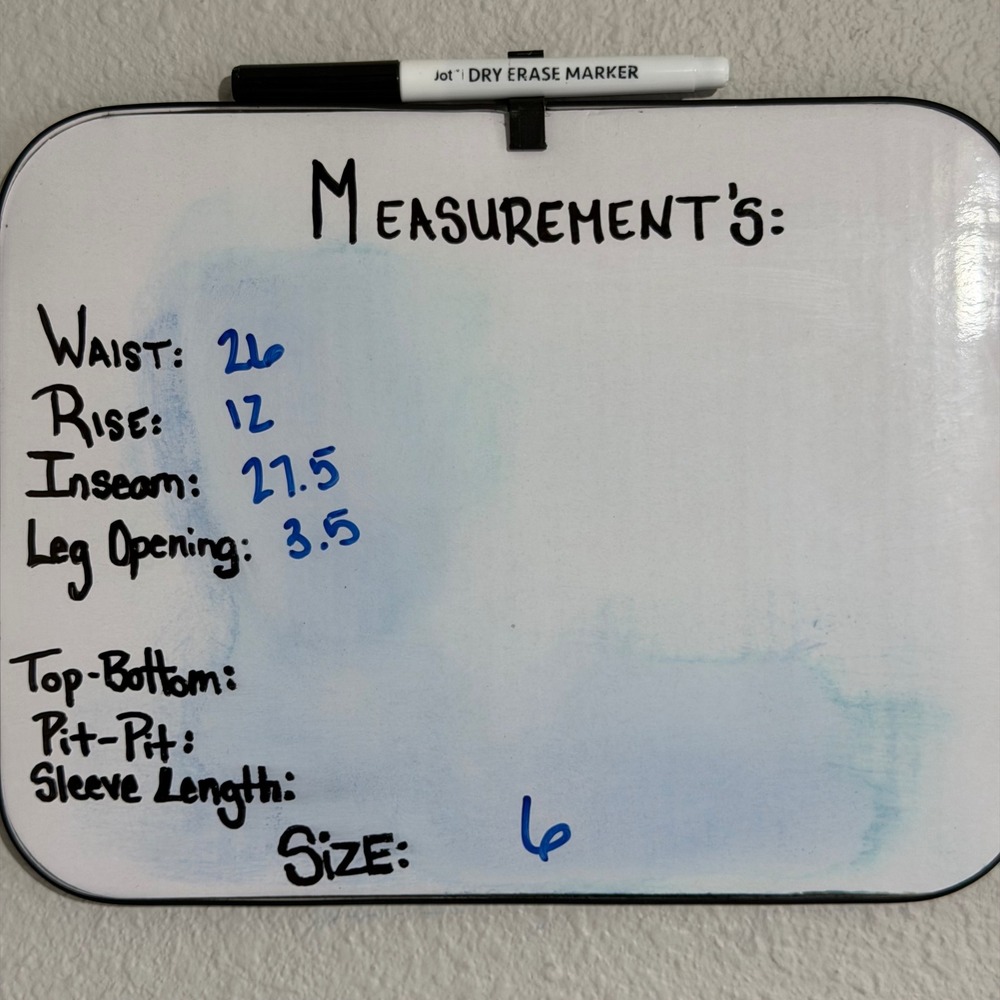 Jot™ DRY ERASE MARKER
MEASUREMENT'S:
WAIST: 26
RISE: 12
Inseam: 27.5
Leg Opening: 3.5
Top-Bottom:
Pit-Pit:
Sleeve Length:
SiZE: 6